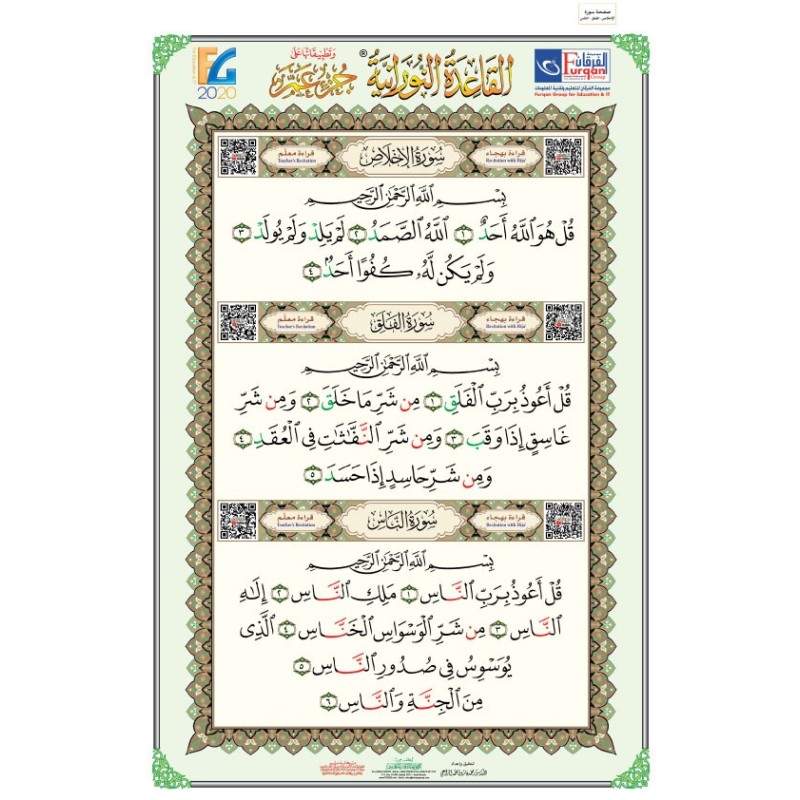 صفحة سورة
الإخلاص - الفلق - الناس
FG
2020
القَاعِدَةُ النُّورَانِيَّة®
وَتَطْبِيقَاتُهَا عَلَى
جُزْءِ عَمَّ
الفرقان
Furqan
Group
مجموعة الفرقان للتعليم وتقنية المعلومات
Furqan Group for Education & IT
قراءة بهجاء
Recitation with Hija'
سُورَةُ الإِخْلَاصِ
قراءة معلم
Teacher's Recitation
بِسْمِ اللَّهِ الرَّحْمَٰنِ الرَّحِيمِ
قُلْ هُوَ اللَّهُ أَحَدٌ ١ اللَّهُ الصَّمَدُ ٢ لَمْ يَلِدْ وَلَمْ يُولَدْ ٣
وَلَمْ يَكُن لَّهُۥ كُفُوًا أَحَدٌۢ ٤
قراءة بهجاء
Recitation with Hija'
سُورَةُ الفَلَقِ
قراءة معلم
Teacher's Recitation
بِسْمِ اللَّهِ الرَّحْمَٰنِ الرَّحِيمِ
قُلْ أَعُوذُ بِرَبِّ الْفَلَقِ ١ مِن شَرِّ مَا خَلَقَ ٢ وَمِن شَرِّ
غَاسِقٍ إِذَا وَقَبَ ٣ وَمِن شَرِّ النَّفَّاثَاتِ فِي الْعُقَدِ ٤
وَمِن شَرِّ حَاسِدٍ إِذَا حَسَدَ ٥
قراءة بهجاء
Recitation with Hija'
سُورَةُ النَّاسِ
قراءة معلم
Teacher's Recitation
بِسْمِ اللَّهِ الرَّحْمَٰنِ الرَّحِيمِ
قُلْ أَعُوذُ بِرَبِّ النَّاسِ ١ مَلِكِ النَّاسِ ٢ إِلَٰهِ
النَّاسِ ٣ مِن شَرِّ الْوَسْوَاسِ الْخَنَّاسِ ٤ الَّذِي
يُوَسْوِسُ فِي صُدُورِ النَّاسِ ٥
مِنَ الْجِنَّةِ وَالنَّاسِ ٦